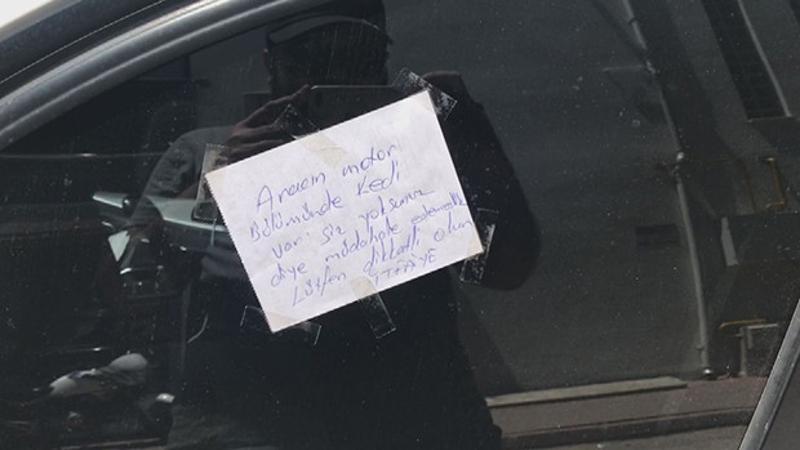 Aracın motor
Bölümünde Kedi
var. Siz yoksunuz
diye müdahale edemedik
Lütfen dikkatli olun
İTFAİYE